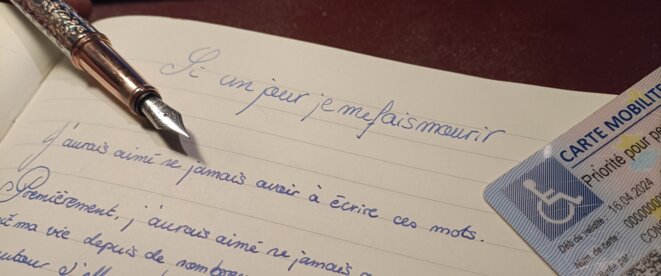 Si un jour je me fais mourir
J'aurais aimé ne jamais avoir à écrire ces mots.
Premièrement, j'aurais aimé ne jamais a
ma vie depuis de nombre
CARTE MOBILITÉ
Priorité pour pe
Déb de validité : 16.04.2024
Num. de carte : 00000000
par : CON